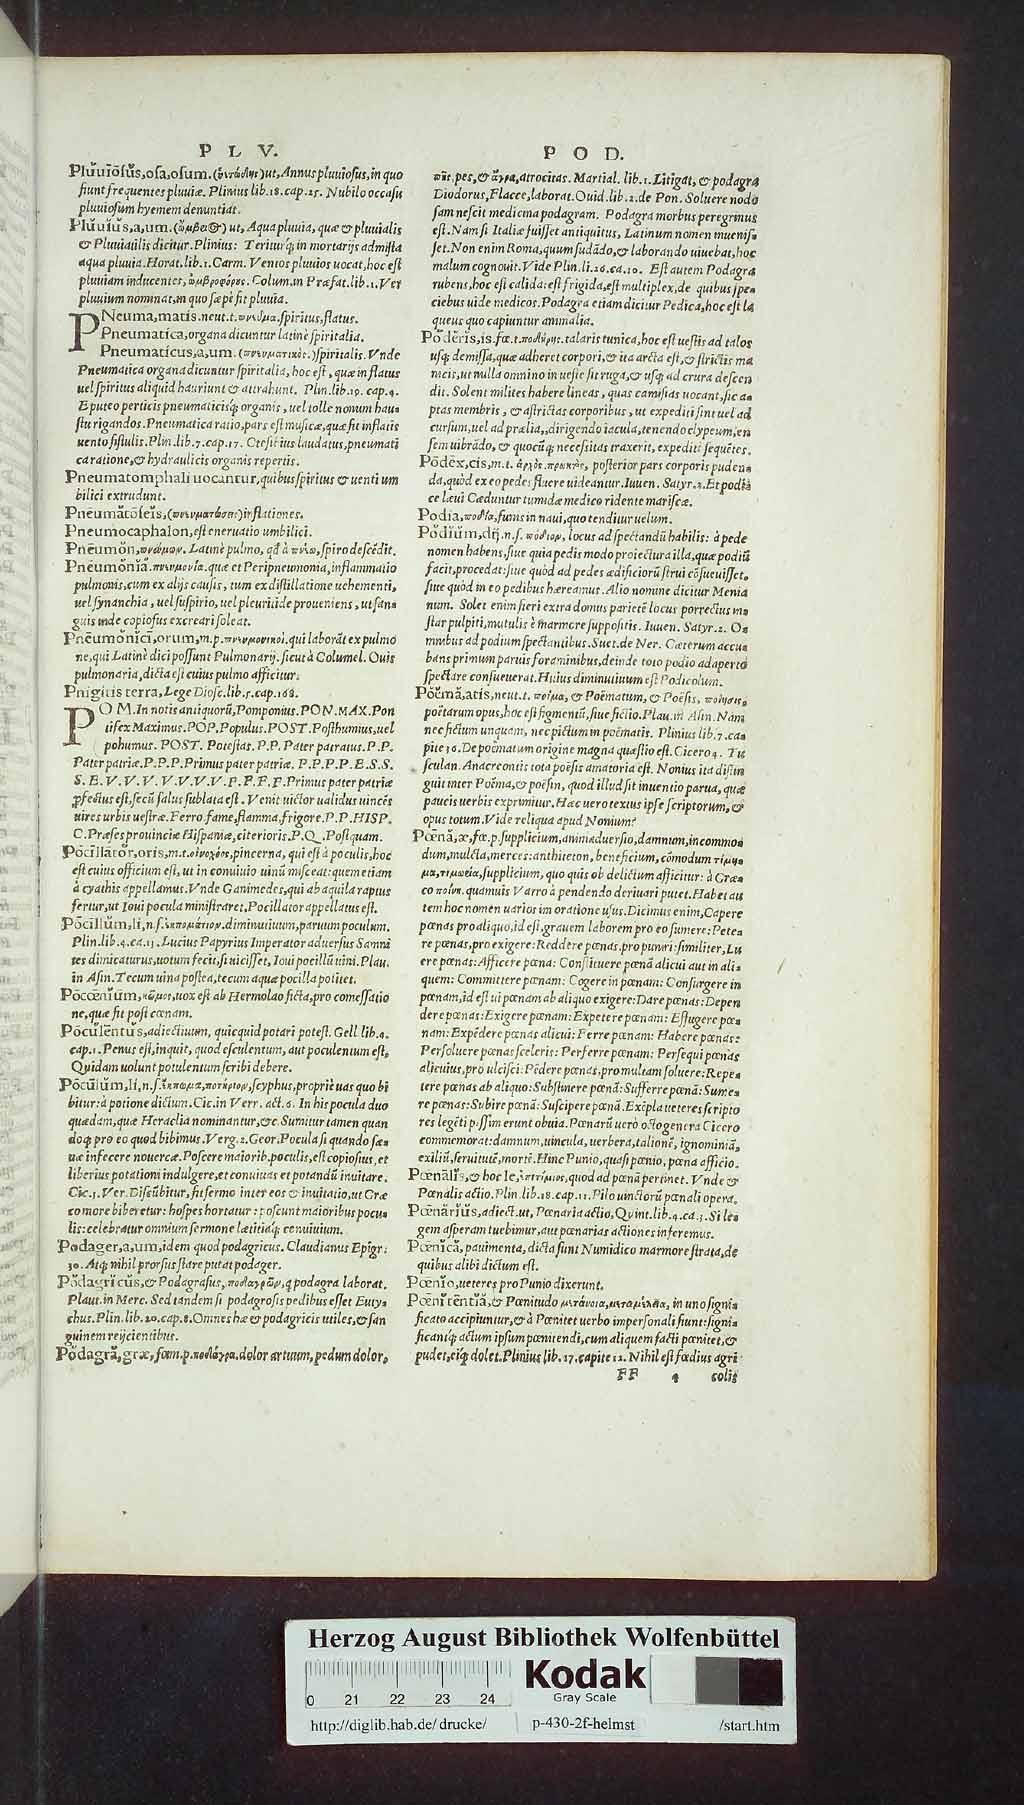 P L V.
Plŭuĭōſŭs, oſa, oſum. (ὑετώδης) ut, Annus pluuioſus, in quo
fiunt frequentes pluuiæ. Plinius lib. 18. cap. 25. Nubilo occaſu
pluuioſum hyemem denuntiat.
Plŭuĭŭs, a, um. (ὄμβριος) ut, Aqua pluuia, quæ & pluuialis
& Pluuiatilis dicitur. Plinius: Teriturq́; in mortarijs admiſta
aqua pluuia. Horat. lib. 1. Carm. Ventos pluuios uocat, hoc eſt
pluuiam inducentes, ὀμβροφόρες. Colum. in Præfat. lib. 1. Ver
pluuium nominat, in quo ſæpè fit pluuia.
PNeuma, matis. neut. t. πνεῦμα. ſpiritus, flatus.
Pneumatica, organa dicuntur latinè ſpiritalia.
Pneumaticus, a, um. (πνευματικὸς.) ſpiritalis. Vnde
Pneumatica organa dicuntur ſpiritalia, hoc eſt, quæ inflatus
uel ſpiritus aliquid hauriunt & attrahunt. Plin. lib. 19. cap. 4.
E puteo perticis pneumaticisq́; organis, uel tolle nonum hau=
ſtu rigandos. Pneumatica ratio, pars eſt muſicæ, quæ fit inflatis
uento fiſtulis. Plin. lib. 7. cap. 17. Cteſibius laudatus, pneumati
ca ratione, & hydraulicis organis repertis.
Pneumatomphali uocantur, quibus ſpiritus & uenti um
bilici extrudunt.
Pneŭmătōſeis, (πνευματώσεις) inflationes.
Pneumocaphalon, eſt eneruatio umbilici.
Pneŭmōn, πνεύμων. Latinè pulmo, qđ à πνέω, ſpiro deſcēdit.
Pneŭmōnĭă. πνευμονία. quæ et Peripneumonia, inflammatio
pulmonis, cum ex alijs cauſis, tum ex diſtillatione uehementi,
uel ſynanchia, uel ſuſpirio, uel pleuritide proueniens, ut ſan=
guis inde copioſus excreari ſoleat.
Pneŭmŏnĭcī, orum, m. p. πνευμονικοὶ. qui laborāt ex pulmo
ne, qui Latinè dici poſſunt Pulmonarij. ſicut à Columel. Ouis
pulmonaria, dicta eſt cuius pulmo afficitur.
Pnigitis terra, Lege Dioſc. lib. 5. cap. 168.
POM. In notis antiquorū, Pomponius. PON. MAX. Pon
tifex Maximus. POP. Populus. POST. Poſthumius, uel
pohumus. POST. Poteſtas. P. P. Pater patratus. P. P.
Pater patriæ. P. P. P. Primus pater patriæ. P. P. P. P. E. S. S.
S. E. V. V. V. V. V. V. V. F. F. F. F. Primus pater patriæ
ꝓfectus eſt, ſecū ſalus ſublata eſt. Venit uictor ualidus uincēs
uires urbis ueſtræ. Ferro fame, flamma, frigore. P. P. HISP.
C. Præſes prouinciæ Hiſpaniæ, citerioris. P. Q. Poſtquam.
Pōcĭllātŏr, oris, m. t. οἰνοχόος, pincerna, qui eſt à poculis, hoc
eſt cuius officium eſt, ut in conuiuio uinū miſceat: quem etiam
à cyathis appellamus. Vnde Ganimedes, qui ab aquila raptus
fertur, ut Ioui pocula miniſtraret, Pocillator appellatus eſt.
Pōcĭllŭm, li, n. ſ. ἐκπομάτιον. diminutiuum, paruum poculum.
Plin. lib. 4. ca. 13. Lucius Papyrius Imperator aduerſus Samni
tes dimicaturus, uotum fecit, ſi uiciſſet, Ioui pocillū uini. Plau.
in Aſin. Tecum uina poſtea, tecum aquæ pocilla potitet.
Pōcœnĭum, κῶμος, uox eſt ab Hermolao ficta, pro comeſſatio
ne, quæ fit poſt cœnam.
Pōcŭlēntŭs, adiectiuum, quicquid potari poteſt. Gell. lib. 4.
cap. 1. Penus eſt, inquit, quod eſculentum, aut poculentum eſt,
Quidam uolunt potulentum ſcribi debere.
Pōcŭlŭm, li, n. ſ. ἔκπωμα, ποτήριον, ſcyphus, propriè uas quo bi
bitur: à potione dictum. Cic. in Verr. act. 6. In his pocula duo
quædam, quæ Heraclia nominantur, &c. Sumitur tamen quan
doq́; pro eo quod bibimus. Verg. 2. Geor. Pocula ſi quando ſæ=
uæ infecere nouercæ. Poſcere maiorib. poculis, eſt copioſius, et
liberius potationi indulgere, et conuiuas et potandū inuitare.
Cic. 3. Ver. Diſcūbitur, fit ſermo inter eos & inuitatio, ut Græ
co more biberetur: hoſpes hortatur: poſcunt maioribus pocu=
lis: celebratur omnium ſermone lætitiaq́; conuiuium.
Pŏdager, a, um, idem quod podagricus. Claudianus Epigr:
30. Atq́; nihil prorſus ſtare putat podager.
Pŏdagrĭcŭs, & Podagraſus, ποδαγρῶν, q podagra laborat.
Plaut. in Merc. Sed tandem ſi podagroſis pedibus eſſet Euty=
chus. Plin. lib. 20. cap. 8. Omnes hæ & podagricis utiles, & ſan
guinem reijcientibus.
Pŏdagră, græ, fœm. p. ποδάγρα, dolor artuum, pedum dolor,
P O D.
πȣ̃ς. pes, & ἄγρα, atrocitas. Martial. lib. 1. Litigat, & podagra
Diodorus, Flacce, laborat. Ouid. lib. 2. de Pon. Soluere nodo
ſam neſcit medicina podagram. Podagra morbus peregrinus
eſt. Nam ſi Italiæ fuiſſet antiquitus, Latinum nomen inueniſ=
ſet. Non enim Roma, quum ſudādo, & laborando uiuebat, hoc
malum cognouit. Vide Plin. li. 26. ca. 10. Eſt autem Podagra
rubens, hoc eſt calida: eſt frigida, eſt multiplex, de quibus ſpe=
ciebus uide medicos. Podagra etiam dicitur Pedica, hoc eſt la
queus quo capiuntur animalia.
Pŏdēris, is. fœ. t. ποδήρης. talaris tunica, hoc eſt ueſtis ad talos
uſq́; demiſſa, quæ adheret corpori, & ita arcta eſt, & ſtrictis ma
nicis, ut nulla omnino in ueſte ſit ruga, & uſq́; ad crura deſcen
dit. Solent milites habere lineas, quas camiſias uocant, ſic a=
ptas membris, & aſtrictas corporibus, ut expediti ſint uel ad
curſum, uel ad prælia, dirigendo iacula, tenendo clypeum, en
ſem uibrādo, & quocūq́; neceſsitas traxerit, expediti ſequētes.
Pōdĕx, cis, m. t. ἀρχὸς. πρωκτὸς, poſterior pars corporis puden=
da, quòd ex eo pedes fluere uideantur. Iuuen. Satyr. 2. Et podi=
ce læui Cæduntur tumidæ medico ridente mariſcæ.
Podia, ποδία, funis in naui, quo tenditur uelum.
Pŏdĭŭm, dij. n. ſ. πόδιον, locus ad ſpectandū habilis: à pede
nomen habens, ſiue quia pedis modo proiectura illa, quæ podiū
facit, procedat: ſiue quòd ad pedes ædificiorū ſtrui cōſueuiſſet,
ſiue quòd in eo pedibus hæreamus. Alio nomine dicitur Menia
num. Solet enim fieri extra domus parietē locus porrectus in=
ſtar pulpiti, mutulis è marmore ſuppoſitis. Iuuen. Satyr. 2. Om
mnibus ad podium ſpectantibus. Suet. de Ner. Cæterum accu=
bans primum paruis foraminibus, deinde toto podio adaperto
ſpectare conſueuerat. Huius diminutiuum eſt Podiolum.
Pŏēmă, atis, neut. t. ποίημα, & Poëmatum, & Poëſis, ποίησις,
poëtarum opus, hoc eſt figmentū, ſiue fictio. Plau. in Aſin. Nam
nec fictum unquam, nec pictum in poëmatis. Plinius lib. 7. ca=
pite 30. De poëmatum origine magna quæſtio eſt. Cicero 4. Tu
ſculan. Anacreontis tota poëſis amatoria eſt. Nonius ita diſtin
guit inter Poëma, & poëſin, quod illud ſit inuentio parua, quæ
paucis uerbis exprimitur. Hæc uero textus ipſe ſcriptorum, &
opus totum. Vide reliqua apud Nonium?
Pœnă, æ, fœ. p. ſupplicium, animaduerſio, damnum, incommo=
dum, mulcta, merces: anthiteton, beneficium, cōmodum τίμη=
μα, τιμωρία, ſupplicium, quo quis ob delictum afficitur: à Græ=
co ποίνη. quamuis Varro à pendendo deriuari putet. Habet au
tem hoc nomen uarios in oratione uſus. Dicimus enim, Capere
pœnas pro aliquo, id eſt, grauem laborem pro eo ſumere: Pete=
re pœnas, pro exigere: Reddere pœnas, pro puniri: ſimiliter, Lu
ere pœnas: Afficere pœna: Conſtituere pœnā alicui aut in ali=
quem: Committere pœnam: Cogere in pœnam: Conſurgere in
pœnam, id eſt ui pœnam ab aliquo exigere: Dare pœnas: Depen
dere pœnas: Exigere pœnam: Expetere pœnam: Effugere pœ=
nam: Expēdere pœnas alicui: Ferre pœnam: Habere pœnas:
Perſoluere pœnas ſceleris: Perferre pœnam: Perſequi pœnas
alicuius, pro ulciſci: Pēdere pœnas, pro multam ſoluere: Repe=
tere pœnas ab aliquo: Subſtinere pœnā: Sufferre pœnā: Sume=
re pœnas: Subire pœnā: Suſcipere pœnā. Exēpla ueteres ſcripto
res legēti paſſim erunt obuia. Pœnarū uerò octo genera Cicero
commemorat: damnum, uincula, uerbera, talionē, ignominiā,
exiliū, ſeruitutē, mortē. Hinc Punio, quaſi pœnio, pœna afficio.
Pœnālĭs, & hoc le, ἐπιτίμιος, quod ad pœnā pertinet. Vnde &
Pœnalis actio. Plin. lib. 18. cap. 11. Pilo uinctorū pœnali opera.
Pœnārĭŭs, adiect. ut, Pœnaria actio, Quint. lib. 4. ca. 3. Si le=
gem aſperam tuebimur, aut pœnarias actiones inferemus.
Pœnĭcă, pauimenta, dicta ſunt Numidico marmore ſtrata, de
quibus alibi dictum eſt.
Pœnĭo, ueteres pro Punio dixerunt.
Pœnĭtēntĭă, & Pœnitudo μετάνοια, μεταμέλεια, in uno ſigni=
ficato accipiuntur, & à Pœnitet uerbo imperſonali fiunt: ſigni=
ficantq́; actum ipſum pœnitendi, cum aliquem facti pœnitet, &
pudet, eiq́; dolet. Plinius lib. 17. capite 12. Nihil eſt fœdius agri
FF 4 colis
Herzog August Bibliothek Wolfenbüttel
0 21 22 23 24
Kodak
Gray Scale
http://diglib.hab.de/ drucke/ p-430-2f-helmst /start.htm